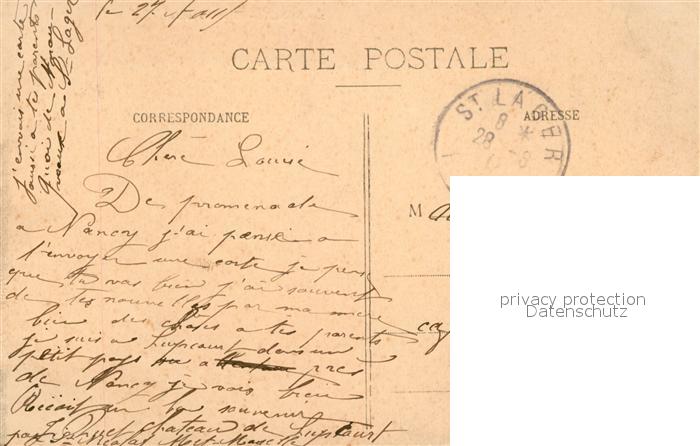 le 27 Aout
J'envoie une carte
aussi a tes parents
quai de
CARTE POSTALE
CORRESPONDANCE
ADRESSE
ST LAGER
8 *
28 -8
Chère Louise
De promenade
a Nancy j'ai pensé a
t'envoyer une carte je pense
que tu vas bien j'ai souvent
de tes nouvelles par ma mère
bien des choses a tes parents
je suis a Lupcourt dans un
petit pays a pres
de Nancy je vois bien
Reçoit un bon souvenir
chateau de Lupcourt
St Nicolas
M
privacy protection
Datenschutz